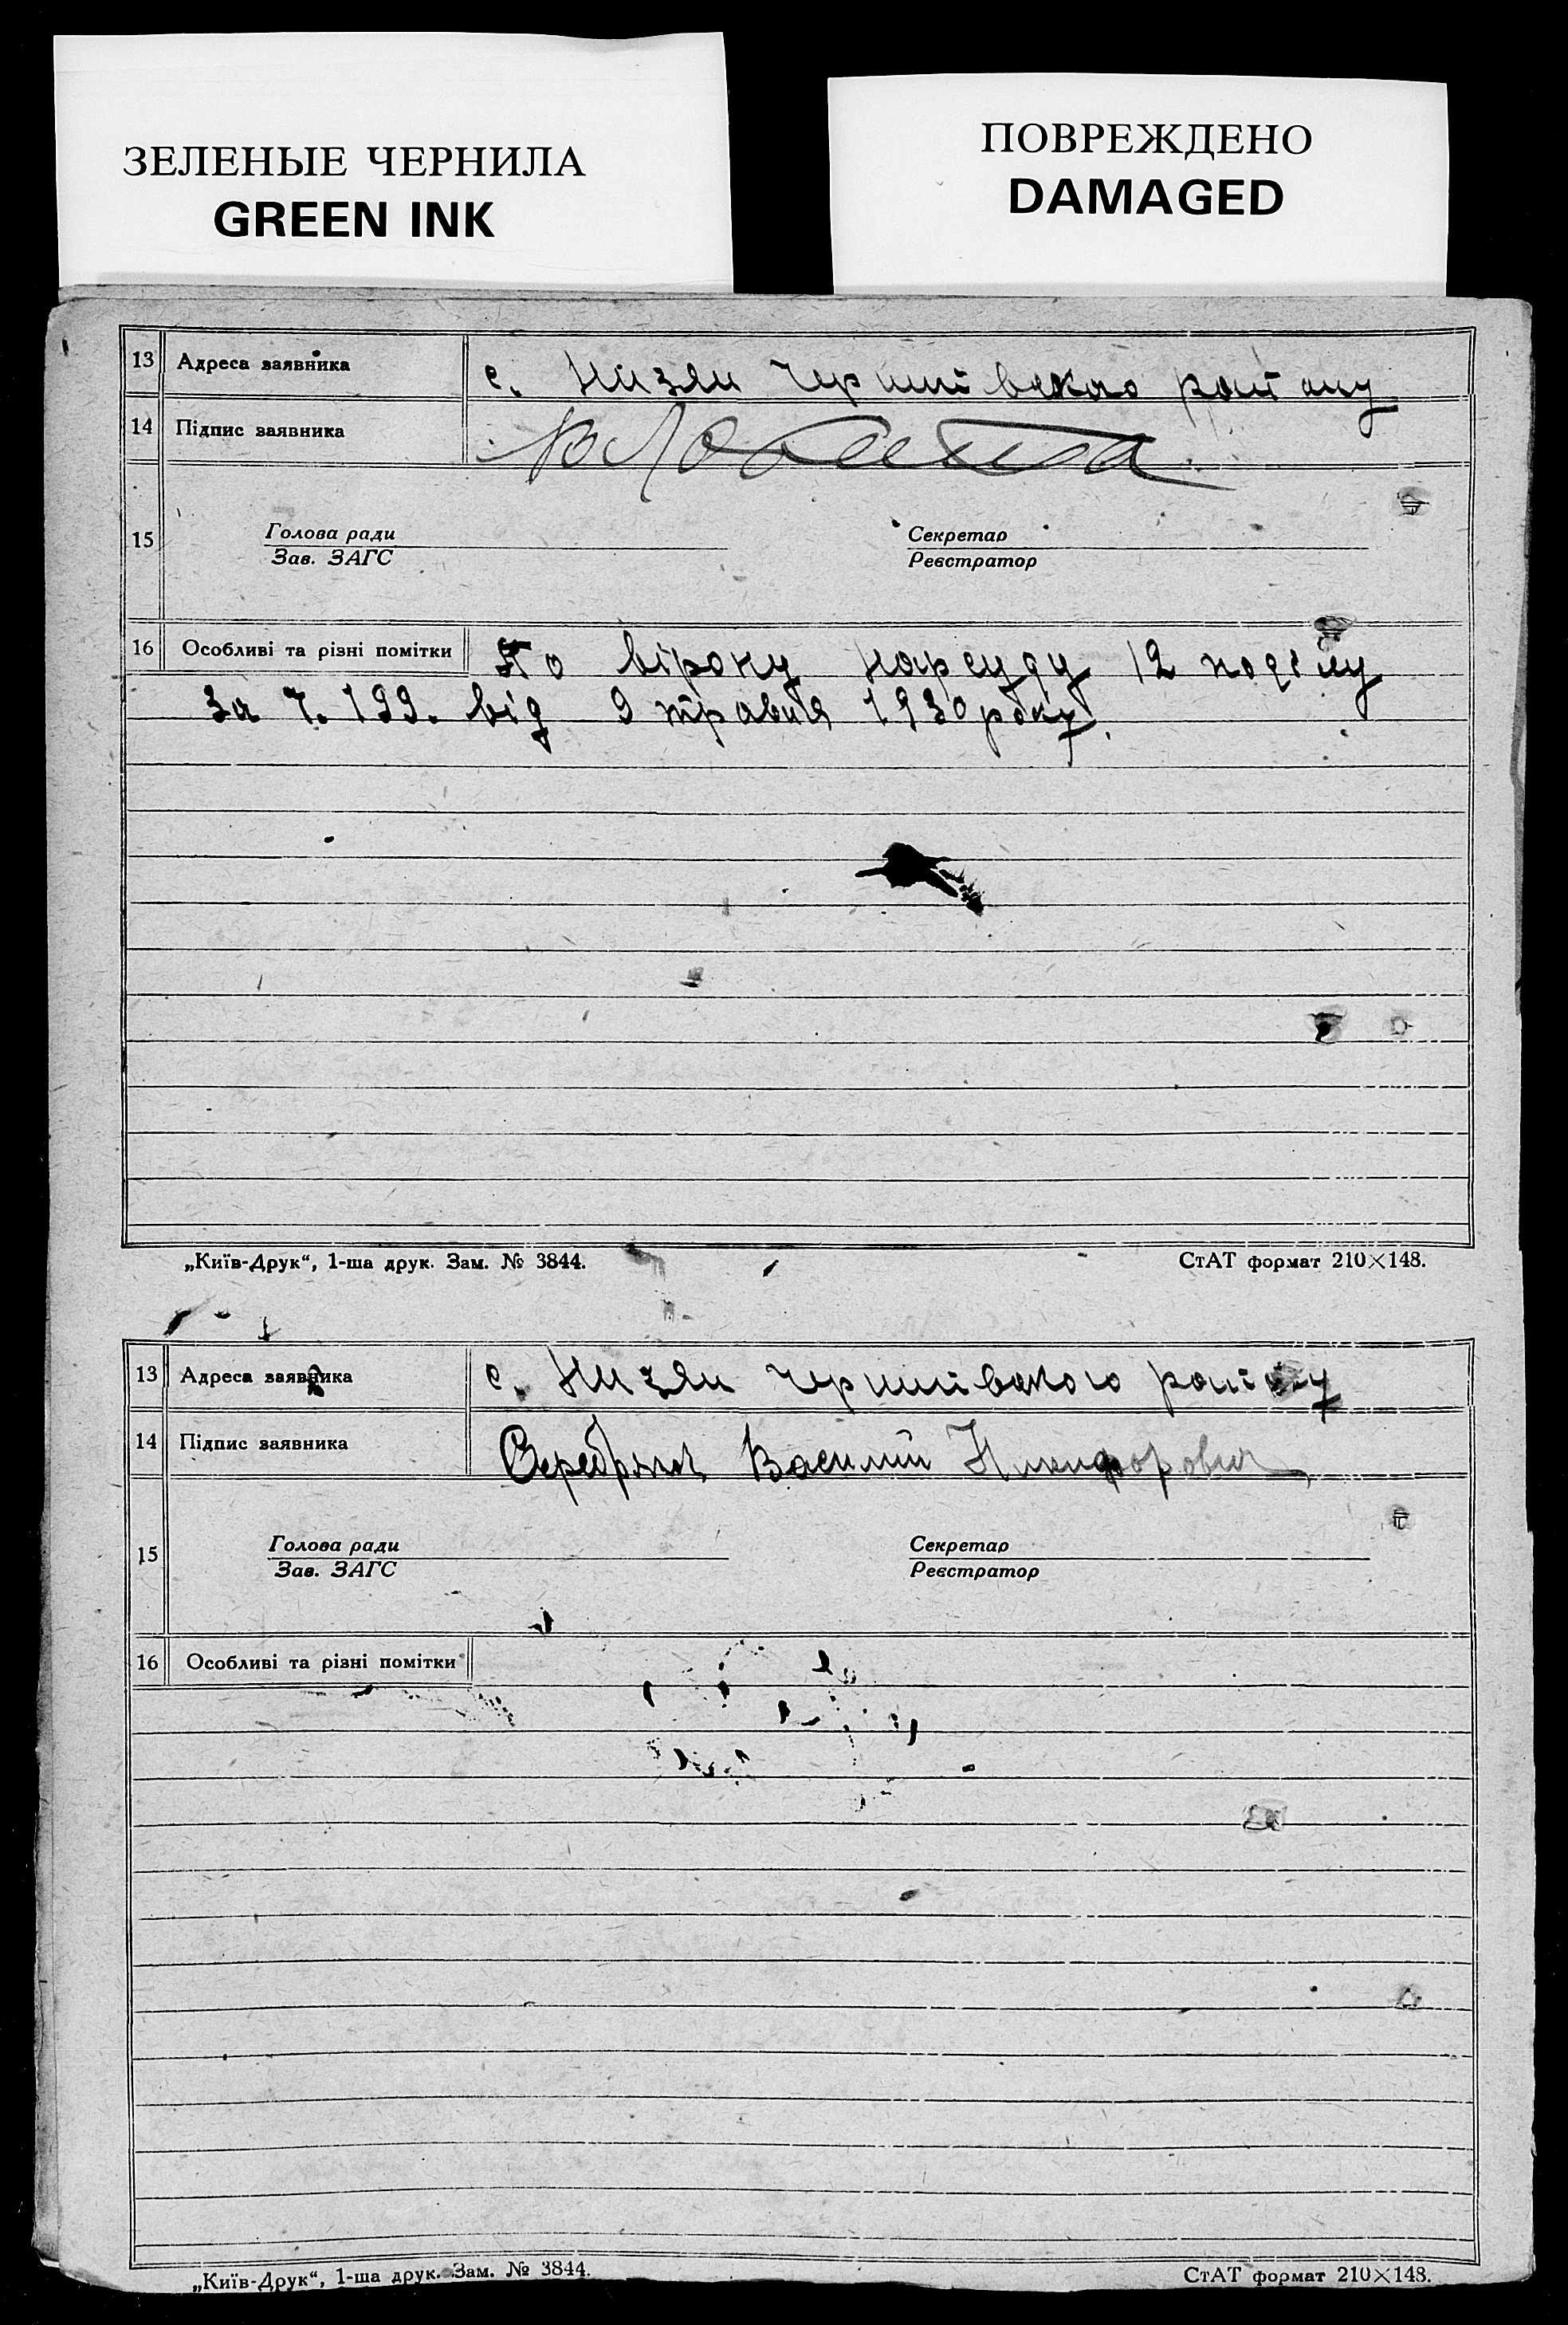 ЗЕЛЕНЫЕ ЧЕРНИЛА
GREEN INK
ПОВРЕЖДЕНО
DAMAGED
13 Адреса заявника с. Низяни району
14 Підпис заявника
15 Голова ради Секретар
Зав. ЗАГС Реєстратор
16 Особливі та різні помітки По віроку нарсуду 12 поділу
за ч. 199. від 9 травня 1930 року.
„Київ-Друк“, 1-ша друк. Зам. № 3844. СтАТ формат 210×148.
13 Адреса заявника с. району
14 Підпис заявника Василий Никифорович
15 Голова ради Секретар
Зав. ЗАГС Реєстратор
16 Особливі та різні помітки
„Київ-Друк“, 1-ша друк. Зам. № 3844. СтАТ формат 210×148.